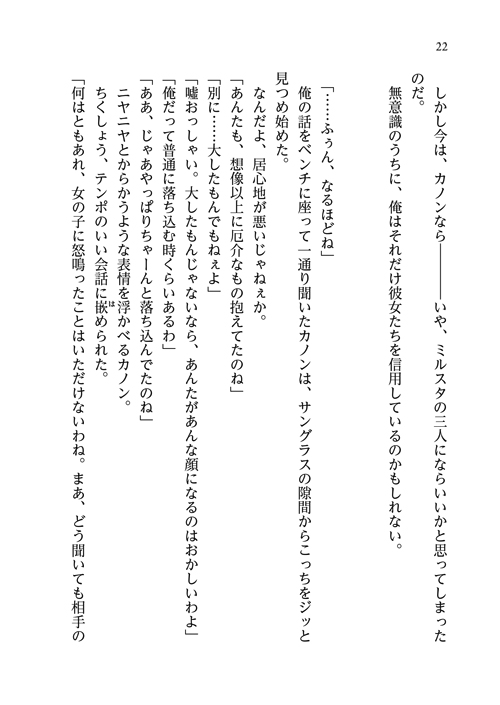 22
　しかし今は、カノンなら――――いや、ミルスタの三人にならいいかと思ってしまった
のだ。
　無意識のうちに、俺はそれだけ彼女たちを信用しているのかもしれない。
「……ふぅん、なるほどね」
　俺の話をベンチに座って一通り聞いたカノンは、サングラスの隙間からこっちをジッと
見つめ始めた。
　なんだよ、居心地が悪いじゃねぇか。
「あんたも、想像以上に厄介なもの抱えてたのね」
「別に……大したもんでもねぇよ」
「嘘おっしゃい。大したもんじゃないなら、あんたがあんな顔になるのはおかしいわよ」
「俺だって普通に落ち込む時くらいあるわ」
「ああ、じゃあやっぱりちゃーんと落ち込んでたのね」
　ニヤニヤとからかうような表情を浮かべるカノン。
　ちくしょう、テンポのいい会話に嵌は められた。
「何はともあれ、女の子に怒鳴ったことはいただけないわね。まあ、どう聞いても相手の